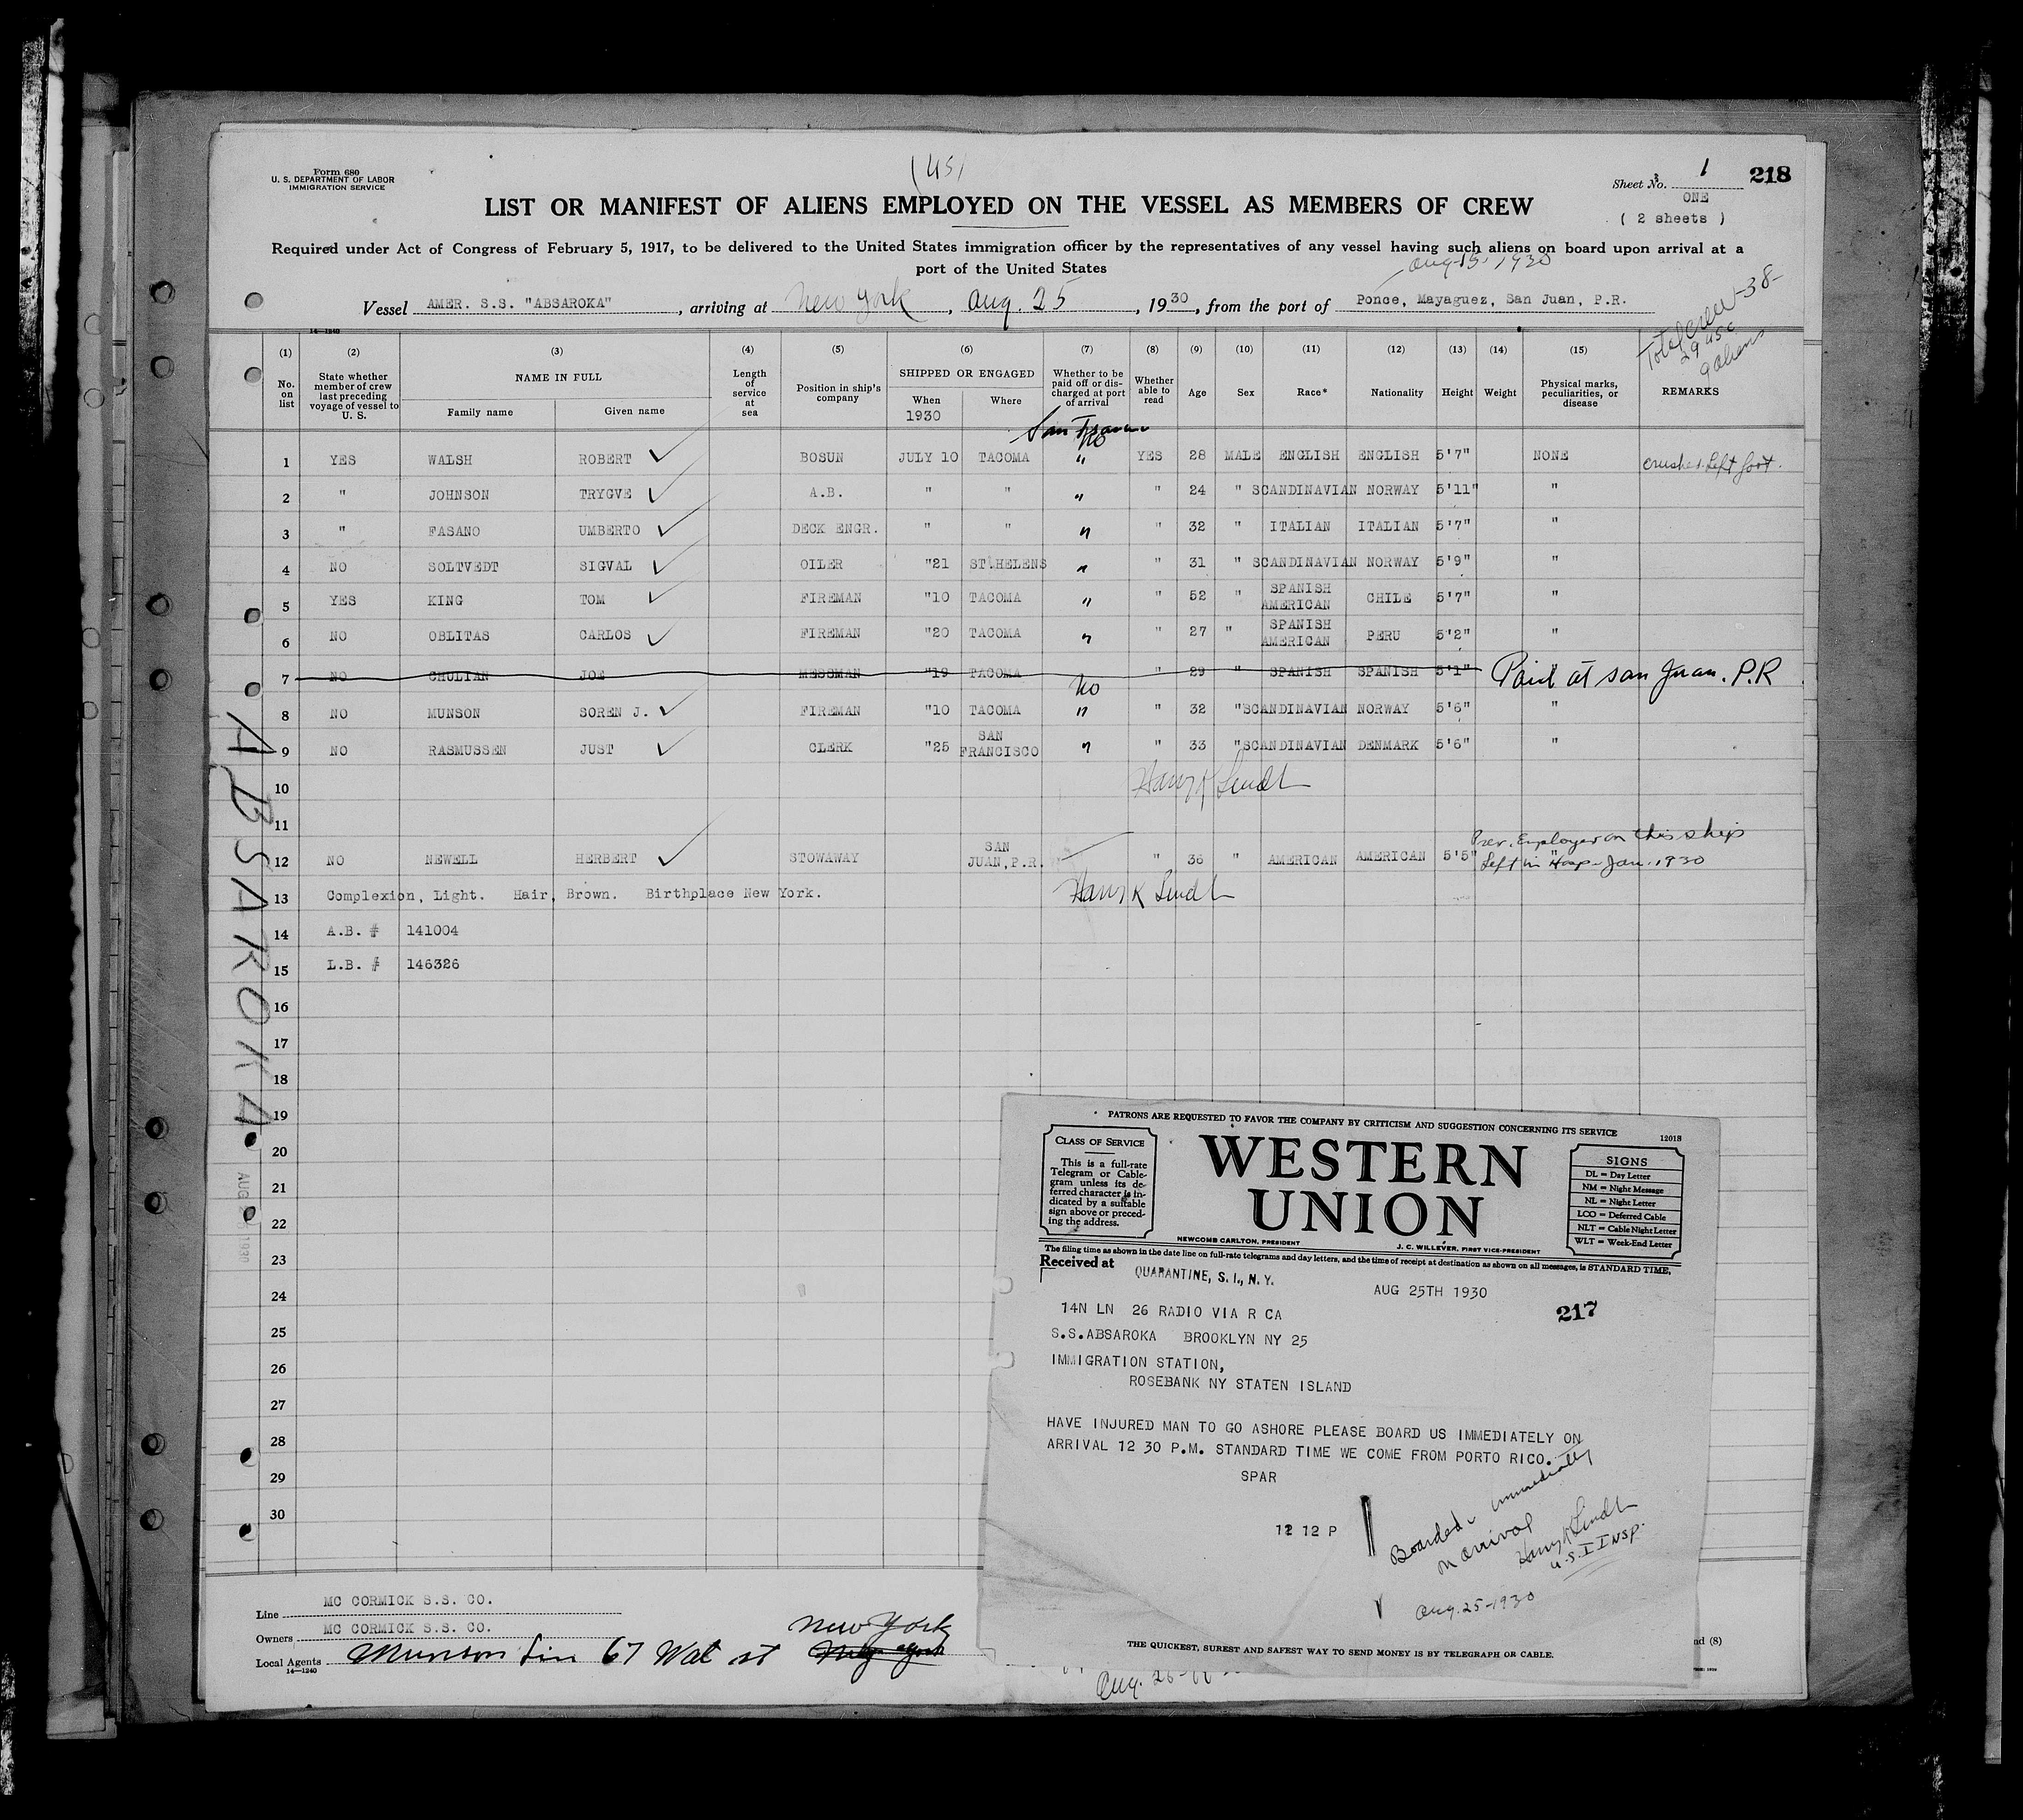 Form 680
U. S. DEPARTMENT OF LABOR
IMMIGRATION SERVICE
(US)
Sheet No. 1
ONE
( 2 sheets )
218
LIST OR MANIFEST OF ALIENS EMPLOYED ON THE VESSEL AS MEMBERS OF CREW
Required under Act of Congress of February 5, 1917, to be delivered to the United States immigration officer by the representatives of any vessel having such aliens on board upon arrival at a
port of the United States
Aug-15-1930
Vessel AMER. S.S. "ABSAROKA", arriving at New York, Aug. 25, 1930, from the port of Ponce, Mayaguez, San Juan, P.R.
Total crew-38-
29 USC
9 aliens
14-1240
(1) (2) (3) (4) (5) (6) (7) (8) (9) (10) (11) (12) (13) (14) (15)
No. on list
State whether member of crew last preceding voyage of vessel to U. S.
NAME IN FULL
Family name
Given name
Length of service at sea
Position in ship's company
SHIPPED OR ENGAGED
When
1930
Where
Whether to be paid off or discharged at port of arrival
Whether able to read
Age
Sex
Race*
Nationality
Height
Weight
Physical marks, peculiarities, or disease
REMARKS
No
1 YES WALSH ROBERT ✓ BOSUN JULY 10 TACOMA " YES 28 MALE ENGLISH ENGLISH 5'7" NONE crushed left foot.
2 " JOHNSON TRYGVE ✓ A.B. " " " " 24 " SCANDINAVIAN NORWAY 5'11" "
3 " FASANO UMBERTO ✓ DECK ENGR. " " " " 32 " ITALIAN ITALIAN 5'7" "
4 NO SOLTVEDT SIGVAL ✓ OILER "21 ST.HELENS " " 31 " SCANDINAVIAN NORWAY 5'9" "
5 YES KING TOM ✓ FIREMAN "10 TACOMA " " 52 " SPANISH AMERICAN CHILE 5'7" "
6 NO OBLITAS CARLOS ✓ FIREMAN "20 TACOMA " " 27 " SPANISH AMERICAN PERU 5'2" "
7 NO CHULIAN JOE MESSMAN "19 TACOMA " 29 " SPANISH SPANISH 5'1" Paid at San Juan. P.R
No
8 NO MUNSON SOREN J. ✓ FIREMAN "10 TACOMA " " 32 " SCANDINAVIAN NORWAY 5'6" "
9 NO RASMUSSEN JUST ✓ CLERK "25 SAN FRANCISCO " " 33 " SCANDINAVIAN DENMARK 5'6" "
10 Harry K Lindt
11
Prev. Employed on this ship
12 NO NEWELL HERBERT ✓ STOWAWAY SAN JUAN,P.R. " 36 " AMERICAN AMERICAN 5'5" "
Left in Hosp-Jan. 1930
13 Complexion, Light. Hair, Brown. Birthplace New York. Harry K Lindt
14 A.B. # 141004
15 L.B. # 146326
16
17
18
19
20
21
22
23
24
25
26
27
28
29
30
ABSAROKA
AUG 1930
PATRONS ARE REQUESTED TO FAVOR THE COMPANY BY CRITICISM AND SUGGESTION CONCERNING ITS SERVICE
1201S
CLASS OF SERVICE
This is a full-rate
Telegram or Cable-
gram unless its de-
ferred character is in-
dicated by a suitable
sign above or preced-
ing the address.
WESTERN
UNION
SIGNS
DL = Day Letter
NM = Night Message
NL = Night Letter
LCO = Deferred Cable
NLT = Cable Night Letter
WLT = Week-End Letter
NEWCOMB CARLTON, PRESIDENT
J. C. WILLEVER, FIRST VICE-PRESIDENT
The filing time as shown in the date line on full-rate telegrams and day letters, and the time of receipt at destination as shown on all messages, is STANDARD TIME.
Received at
QUARANTINE, S. I., N. Y.
AUG 25TH 1930
217
14N LN 26 RADIO VIA R CA
S.S.ABSAROKA BROOKLYN NY 25
IMMIGRATION STATION,
ROSEBANK NY STATEN ISLAND
HAVE INJURED MAN TO GO ASHORE PLEASE BOARD US IMMEDIATELY ON
ARRIVAL 12 30 P.M. STANDARD TIME WE COME FROM PORTO RICO.
SPAR
12 12 P
Boarded immediately
on arrival
Harry K Lindt
U.S.I INSP.
Aug. 25-1930
THE QUICKEST, SUREST AND SAFEST WAY TO SEND MONEY IS BY TELEGRAPH OR CABLE.
Line MC CORMICK S.S. CO.
Owners MC CORMICK S.S. CO.
New York
Local Agents Munson Line 67 Wall st
14-1240
nd (8)
Aug. 26